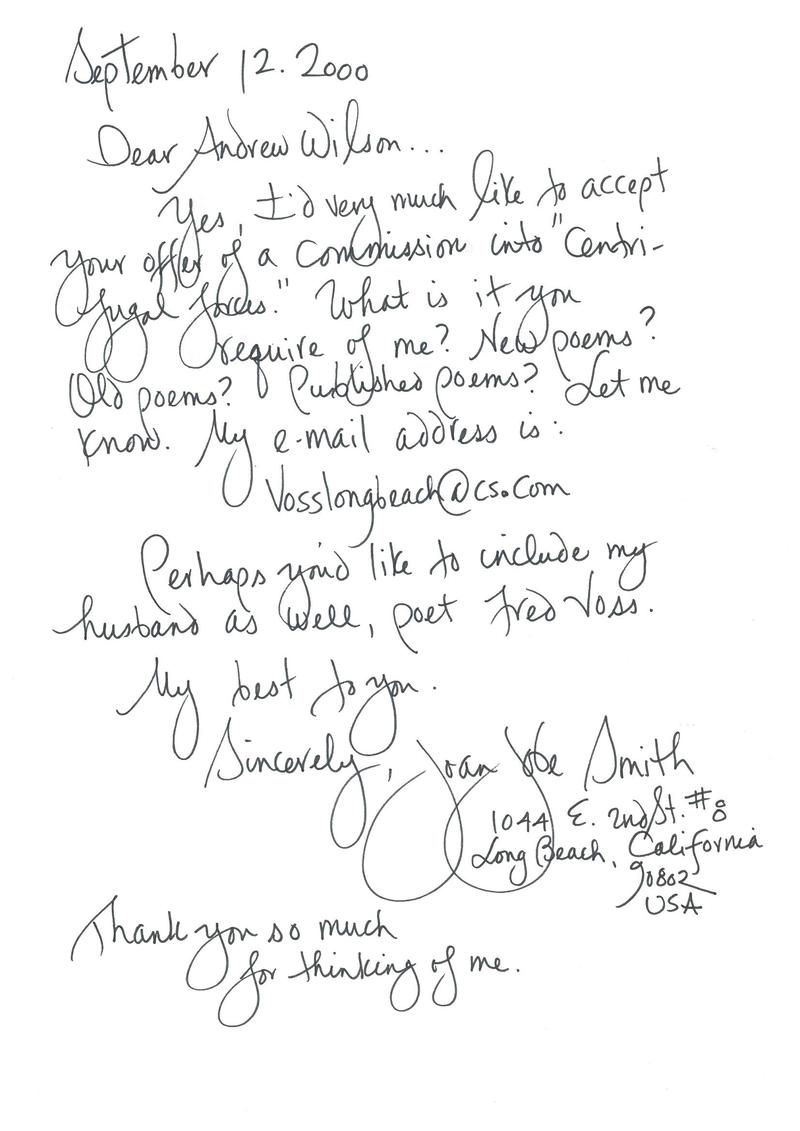 September 12. 2000
Dear Andrew Wilson...
Yes, I'd very much like to accept
your offer of a commission into "Centri-
fugal forces." What is it you
require of me? New poems?
Old poems? Published poems? Let me
know. My e-mail address is:
Vosslongbeach@cs.com
Perhaps you'd like to include my
husband as well, poet Fred Voss.
My best to you.
Sincerely, Joan Jobe Smith
1044 E. 2nd St. #8
Long Beach, California
90802
USA
Thank you so much
for thinking of me.